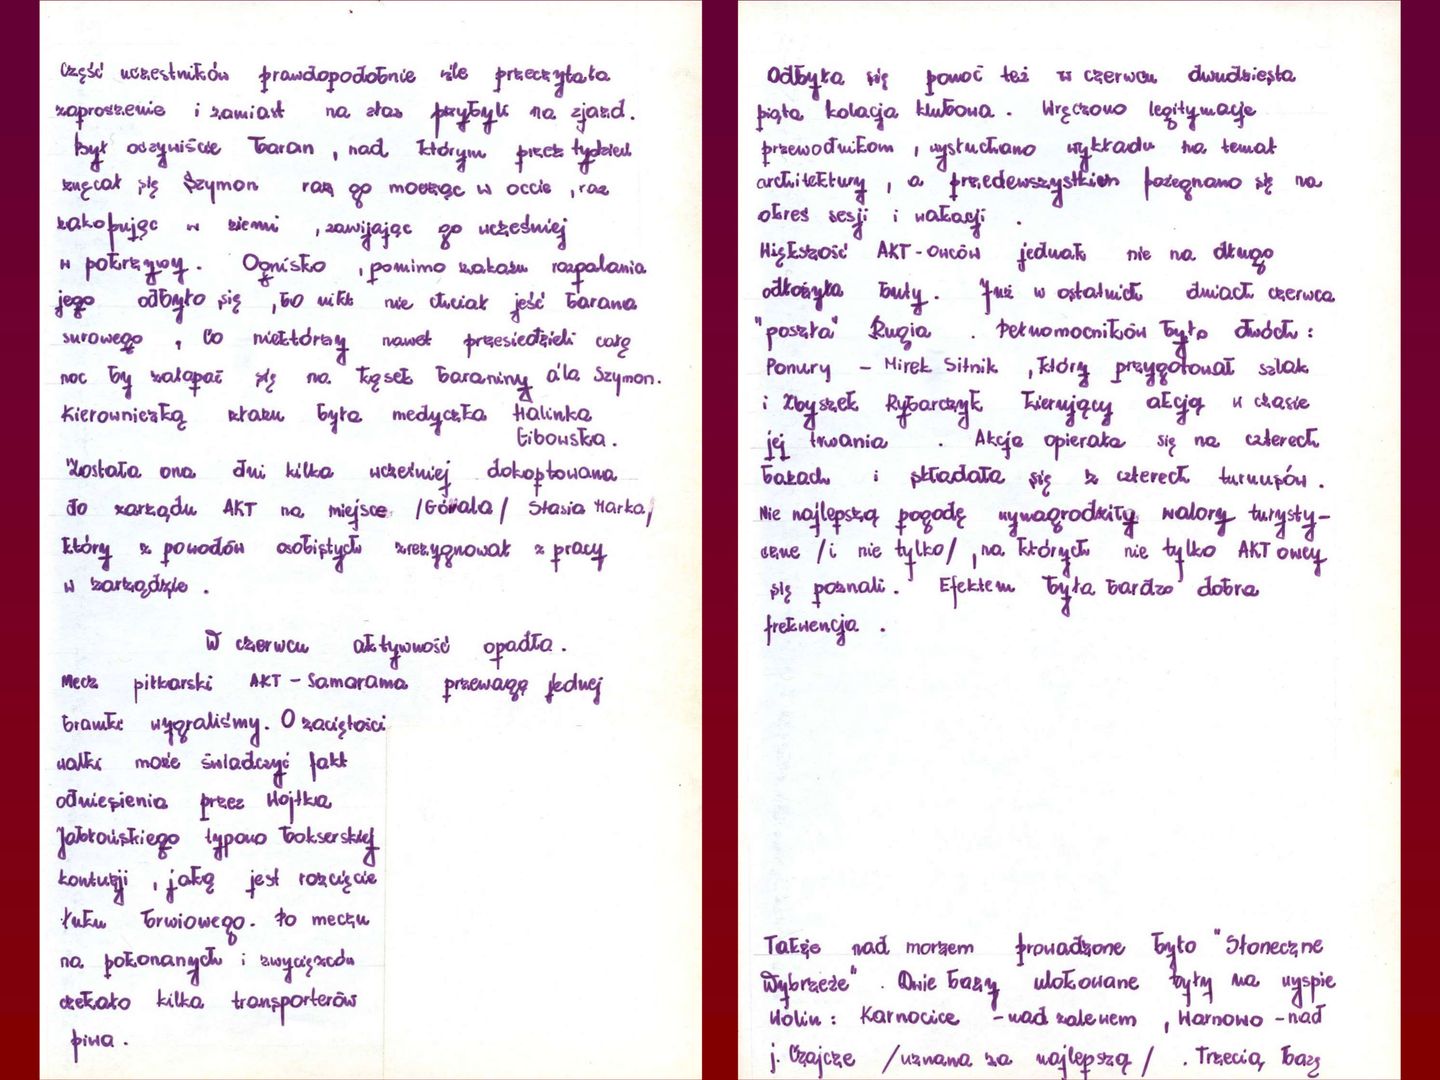 Część uczestników prawdopodobnie źle przeczytała
zaproszenie i zamiast na złaz przybyli na zjazd.
Był oczywiście baran, nad którym przez tydzień
znęcał się Szymon raz go mocząc w occie, raz
zakopując w ziemi, zawijając go wcześniej
w pokrzywy. Ognisko, pomimo zakazu rozpalania
jego odbyło się, bo nikt nie chciał jeść barana
surowego, Co niektórzy nawet przesiedzieli całą
noc by załapać się na kęsek baraniny a'la Szymon.
Kierowniczką złazu była medyczka Halinka
Gibowska.
Została ona dni kilka wcześniej dokoptowana
do zarządu AKT na miejsce /Górala/ Stasia Marka,
który z powodów osobistych zrezygnował z pracy
w zarządzie.
W czerwcu aktywność opadła.
Mecz piłkarski AKT - Samarama przewagą jednej
bramki wygraliśmy. O zaciętości
walki może świadczyć fakt
odniesienia przez Wojtka
Jabłońskiego typowo bokserskiej
kontuzji, jaką jest rozcięcie
łuku brwiowego. Po meczu
na pokonanych i zwycięzców
czekało kilka transporterów
piwa.
Odbyła się ponoć też w czerwcu dwudziesta
piąta kolacja klubowa. Wręczono legitymacje
przewodnikom, wysłuchano wykładu na temat
architektury, a przedewszystkiem pożegnano się na
okres sesji i wakacji.
Większość AKT-owców jednak nie na długo
odłożyła buty. Już w ostatnich dniach czerwca
"poszła" Rugia. Pełnomocników było dwóch:
Ponury - Mirek Sitnik, który przygotował szlak
i Zbyszek Rybarczyk kierujący akcją w czasie
jej trwania. Akcja opierała się na czterech
bazach i składała się z czterech turnusów.
Nie najlepszą pogodę wynagrodziły walory turysty-
czne /i nie tylko/, na których nie tylko AKT owcy
się poznali. Efektem była bardzo dobra
frekwencja.
Także nad morzem prowadzone było "Słoneczne
Wybrzeże". Dwie bazy ulokowane były na wyspie
Wolin: Karnocice - nad zalewem, Warnowo - nad
j. Czajcze /uznana za najlepszą/. Trzecią bazę